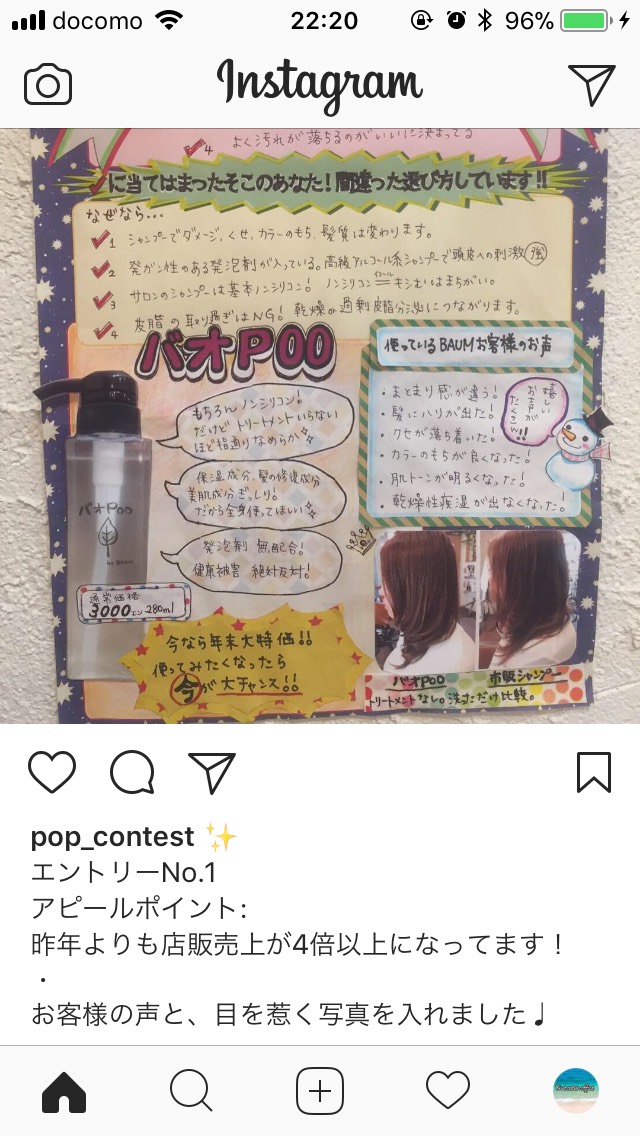 docomo
22:20
96%
Instagram
4 よく汚れが落ちるのがいいに決まってる
に当てはまったそこのあなた!間違った選び方しています!!
なぜなら...
1 シャンプーでダメージ,くせ,カラーのもち,髪質は変わります。
2 発ガン性のある発泡剤が入っている。高級アルコール系シャンプーで頭皮への刺激強
3 サロンのシャンプーは基本ノンシリコン! ノンシリコン=キシむはまちがい。
イコール
4 皮脂の取り過ぎはNG! 乾燥や過剰皮脂分泌につながります。
バオPOO
もちろんノンシリコン!
だけどトリートメントいらない
ほど指通りなめらか
保湿成分,髪の修復成分
美肌成分ぎっしり。
だから全身使ってほしい
発泡剤 無配合!
健康被害 絶対反対!
バオPoo
by BAUM
通常価格
3000エン 280ml
今なら年末大特価!!
使ってみたくなったら
今が大チャンス!!
使っているBAUMお客様のお声
・まとまり感が違う!
・髪にハリが出た!
・クセが落ち着いた!
・カラーのもちが良くなった!
・肌トーンが明るくなった!
・乾燥性疾湿が出なくなった!
嬉しい
お声が
たくさん!!
バオPOO 市販シャンプー
トリートメントなし。洗っただけ比較。
pop_contest ✨
エントリーNo.1
アピールポイント:
昨年よりも店販売上が4倍以上になってます!
・
お客様の声と、目を惹く写真を入れました♩